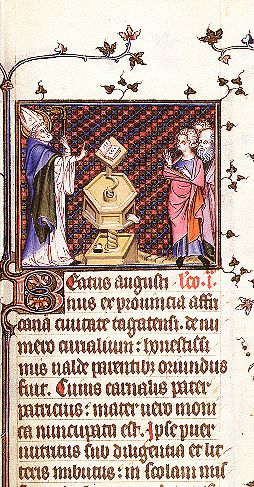 Beatus augusti l̄co. i.
nus ex prouincia affri
cana ciuitate tagatensi. de nu
mero curialium: honestissi
mis ualde parentibz oriundus
fuit. Cuius carnalis pater
patricius: mater uero moni
ca nuncupata est. Ipse puer
nutritus sub diligentia et lit
teris inbutus: in scolam mis